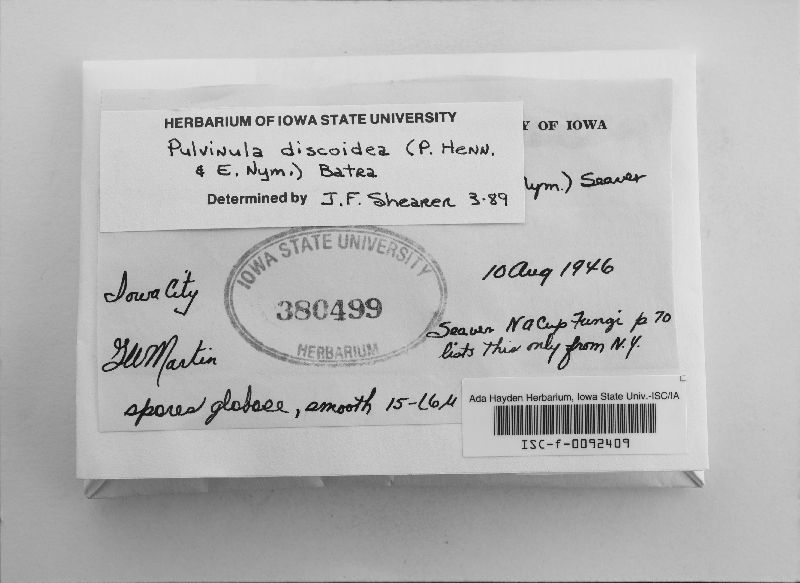 HERBARIUM OF IOWA STATE UNIVERSITY
Pulvinula discoidea (P. Henn.
& E. Nym.) Batra
Determined by J.F. Shearer 3-89
Y OF IOWA
Nym.) Seaver
IOWA STATE UNIVERSITY
380499
HERBARIUM
Iowa City
10 Aug 1946
GWMartin
Seaver N a Cup Fungi p 70
lists this only from N.Y.
spores globose, smooth 15-16 µ
Ada Hayden Herbarium, Iowa State Univ.-ISC/IA
ISC-f-0092409